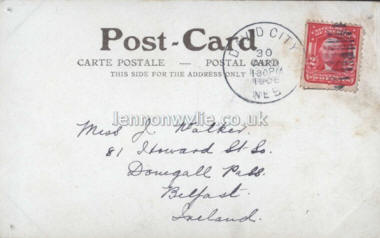 Post-Card
CARTE POSTALE — POSTAL CARD
THIS SIDE FOR THE ADDRESS ONLY
DAVID CITY
30
130PM
NEB
Lennonwylie.co.uk
Miss J. Walker.
81 Howard St So.
Donegall Pass.
Belfast.
Ireland.